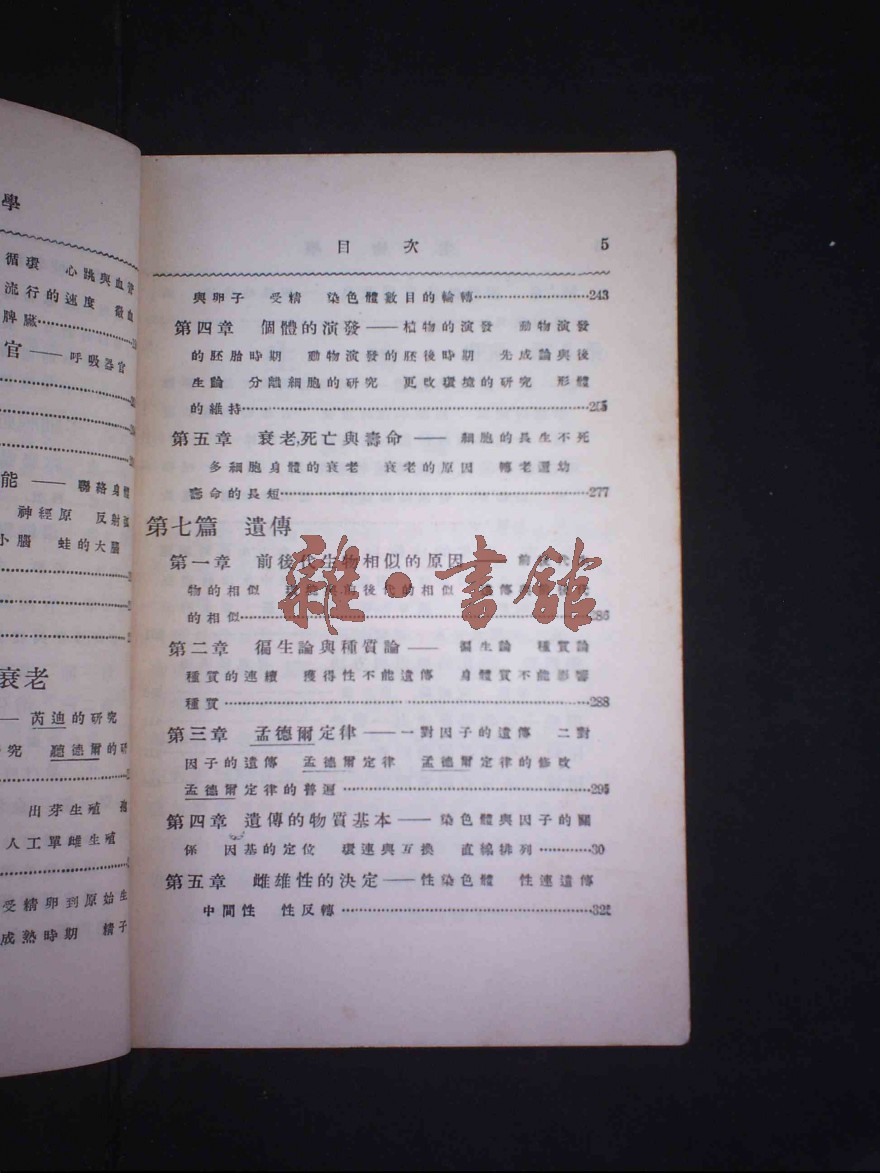 學
循環 心跳與血管
流行的速度 微血
脾臟
官——呼吸器官
能——聯絡身體
神經原 反射弧
小腦 蛙的大腦
衰老
芮迪的研究
究 聽德爾的研
出芽生殖
人工單雌生殖
受精卵到原始生
成熟時期 精子
目次 5
與卵子 受精 染色體數目的輪轉……243
第四章 個體的演發——植物的演發 動物演發
的胚胎時期 動物演發的胚後時期 先成論與後
生論 分離細胞的研究 更改環境的研究 形體
的維持……
第五章 衰老,死亡與壽命——細胞的長生不死
多細胞身體的衰老 衰老的原因 轉老還幼
壽命的長短……277
第七篇 遺傳
第一章 前後代生物相似的原因
物的相似 前後代的相似
的相似……286
第二章 徧生論與種質論——徧生論 種質論
種質的連續 獲得性不能遺傳 身體質不能影響
種質……288
第三章 孟德爾定律——一對因子的遺傳 二對
因子的遺傳 孟德爾定律 孟德爾定律的修改
孟德爾定律的普遍……295
第四章 遺傳的物質基本——染色體與因子的關
係 因基的定位 環連與互換 直線排列……30
第五章 雌雄性的決定——性染色體 性連遺傳
中間性 性反轉……322
雜·書館